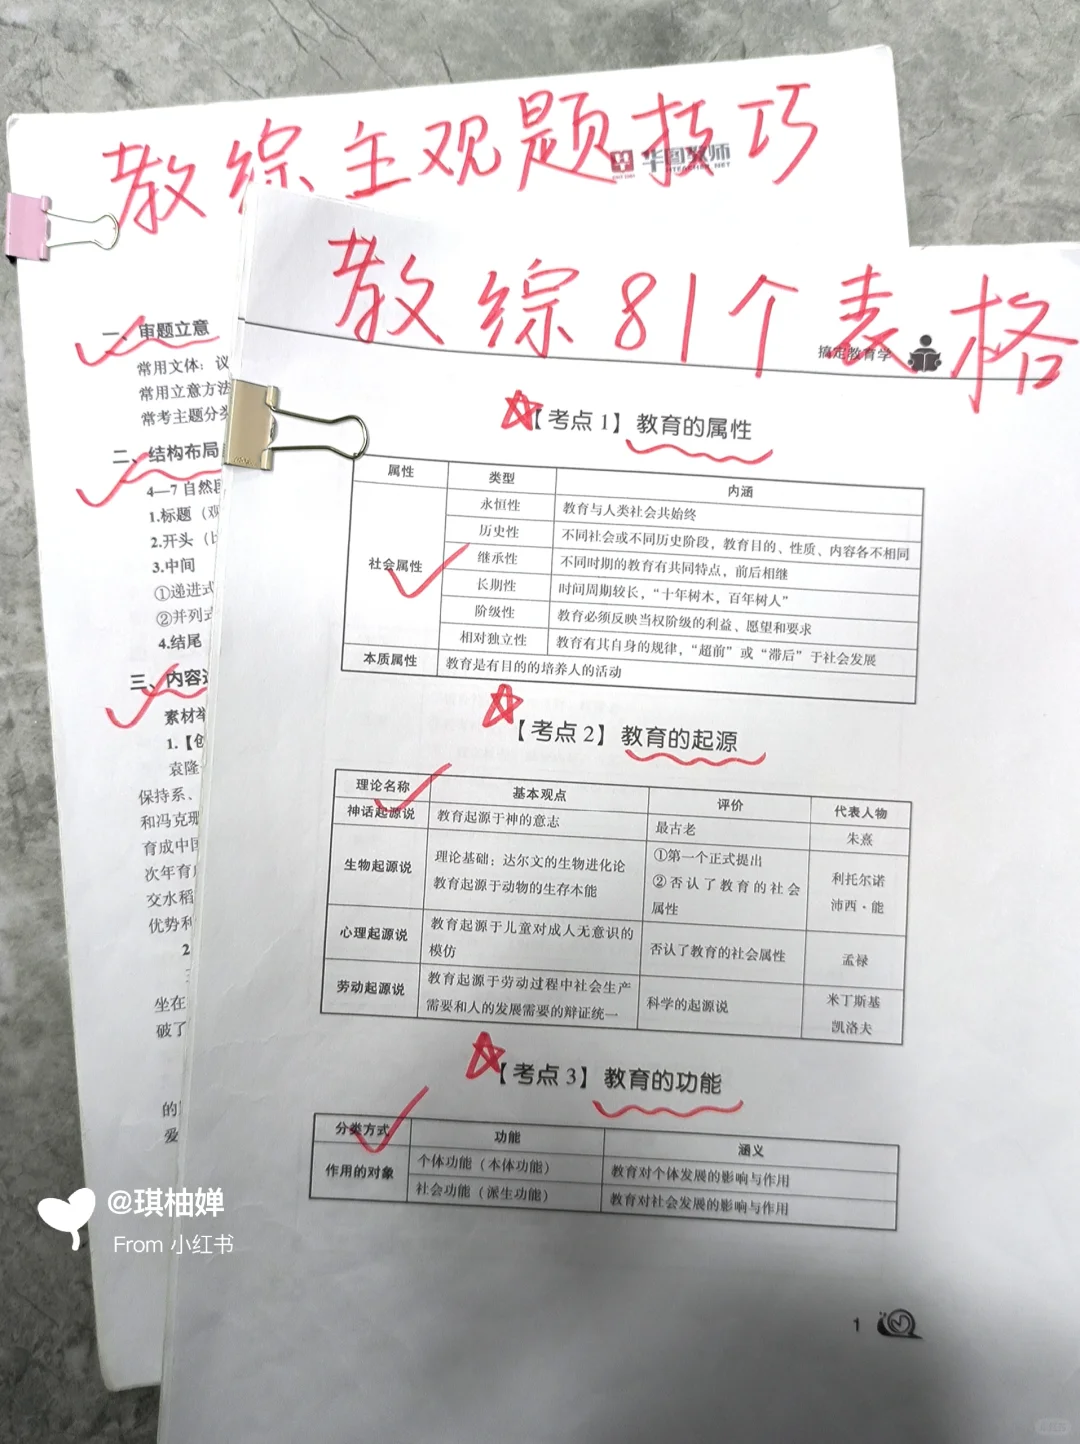 教综主观题技巧
华图教师
HTEACHER.NET
一、审题立意
常用文体：议
常用立意方法
常考主题分类
二、结构布局
4—7 自然段
1.标题（观
2.开头（比
3.中间
①递进式
②并列式
4.结尾
三、内容
素材举
1.【创
袁隆
保持系、
和冯克珊
育成中国
次年育
交水稻
优势利
2
坐在
破了
的
爱
教综81个表格
搞定教育学
【考点 1】教育的属性
属性 类型 内涵
社会属性
永恒性 教育与人类社会共始终
历史性 不同社会或不同历史阶段，教育目的、性质、内容各不相同
继承性 不同时期的教育有共同特点，前后相继
长期性 时间周期较长，“十年树木，百年树人”
阶级性 教育必须反映当权阶级的利益、愿望和要求
相对独立性 教育有其自身的规律，“超前”或“滞后”于社会发展
本质属性 教育是有目的的培养人的活动
【考点 2】教育的起源
理论名称 基本观点 评价 代表人物
神话起源说 教育起源于神的意志 最古老 朱熹
生物起源说
理论基础：达尔文的生物进化论
教育起源于动物的生存本能
①第一个正式提出
②否认了教育的社会
属性
利托尔诺
沛西·能
心理起源说
教育起源于儿童对成人无意识的
模仿
否认了教育的社会属性 孟禄
劳动起源说
教育起源于劳动过程中社会生产
需要和人的发展需要的辩证统一
科学的起源说
米丁斯基
凯洛夫
【考点 3】教育的功能
分类方式 功能 涵义
作用的对象
个体功能（本体功能） 教育对个体发展的影响与作用
社会功能（派生功能） 教育对社会发展的影响与作用
1
@琪柚婵
From 小红书